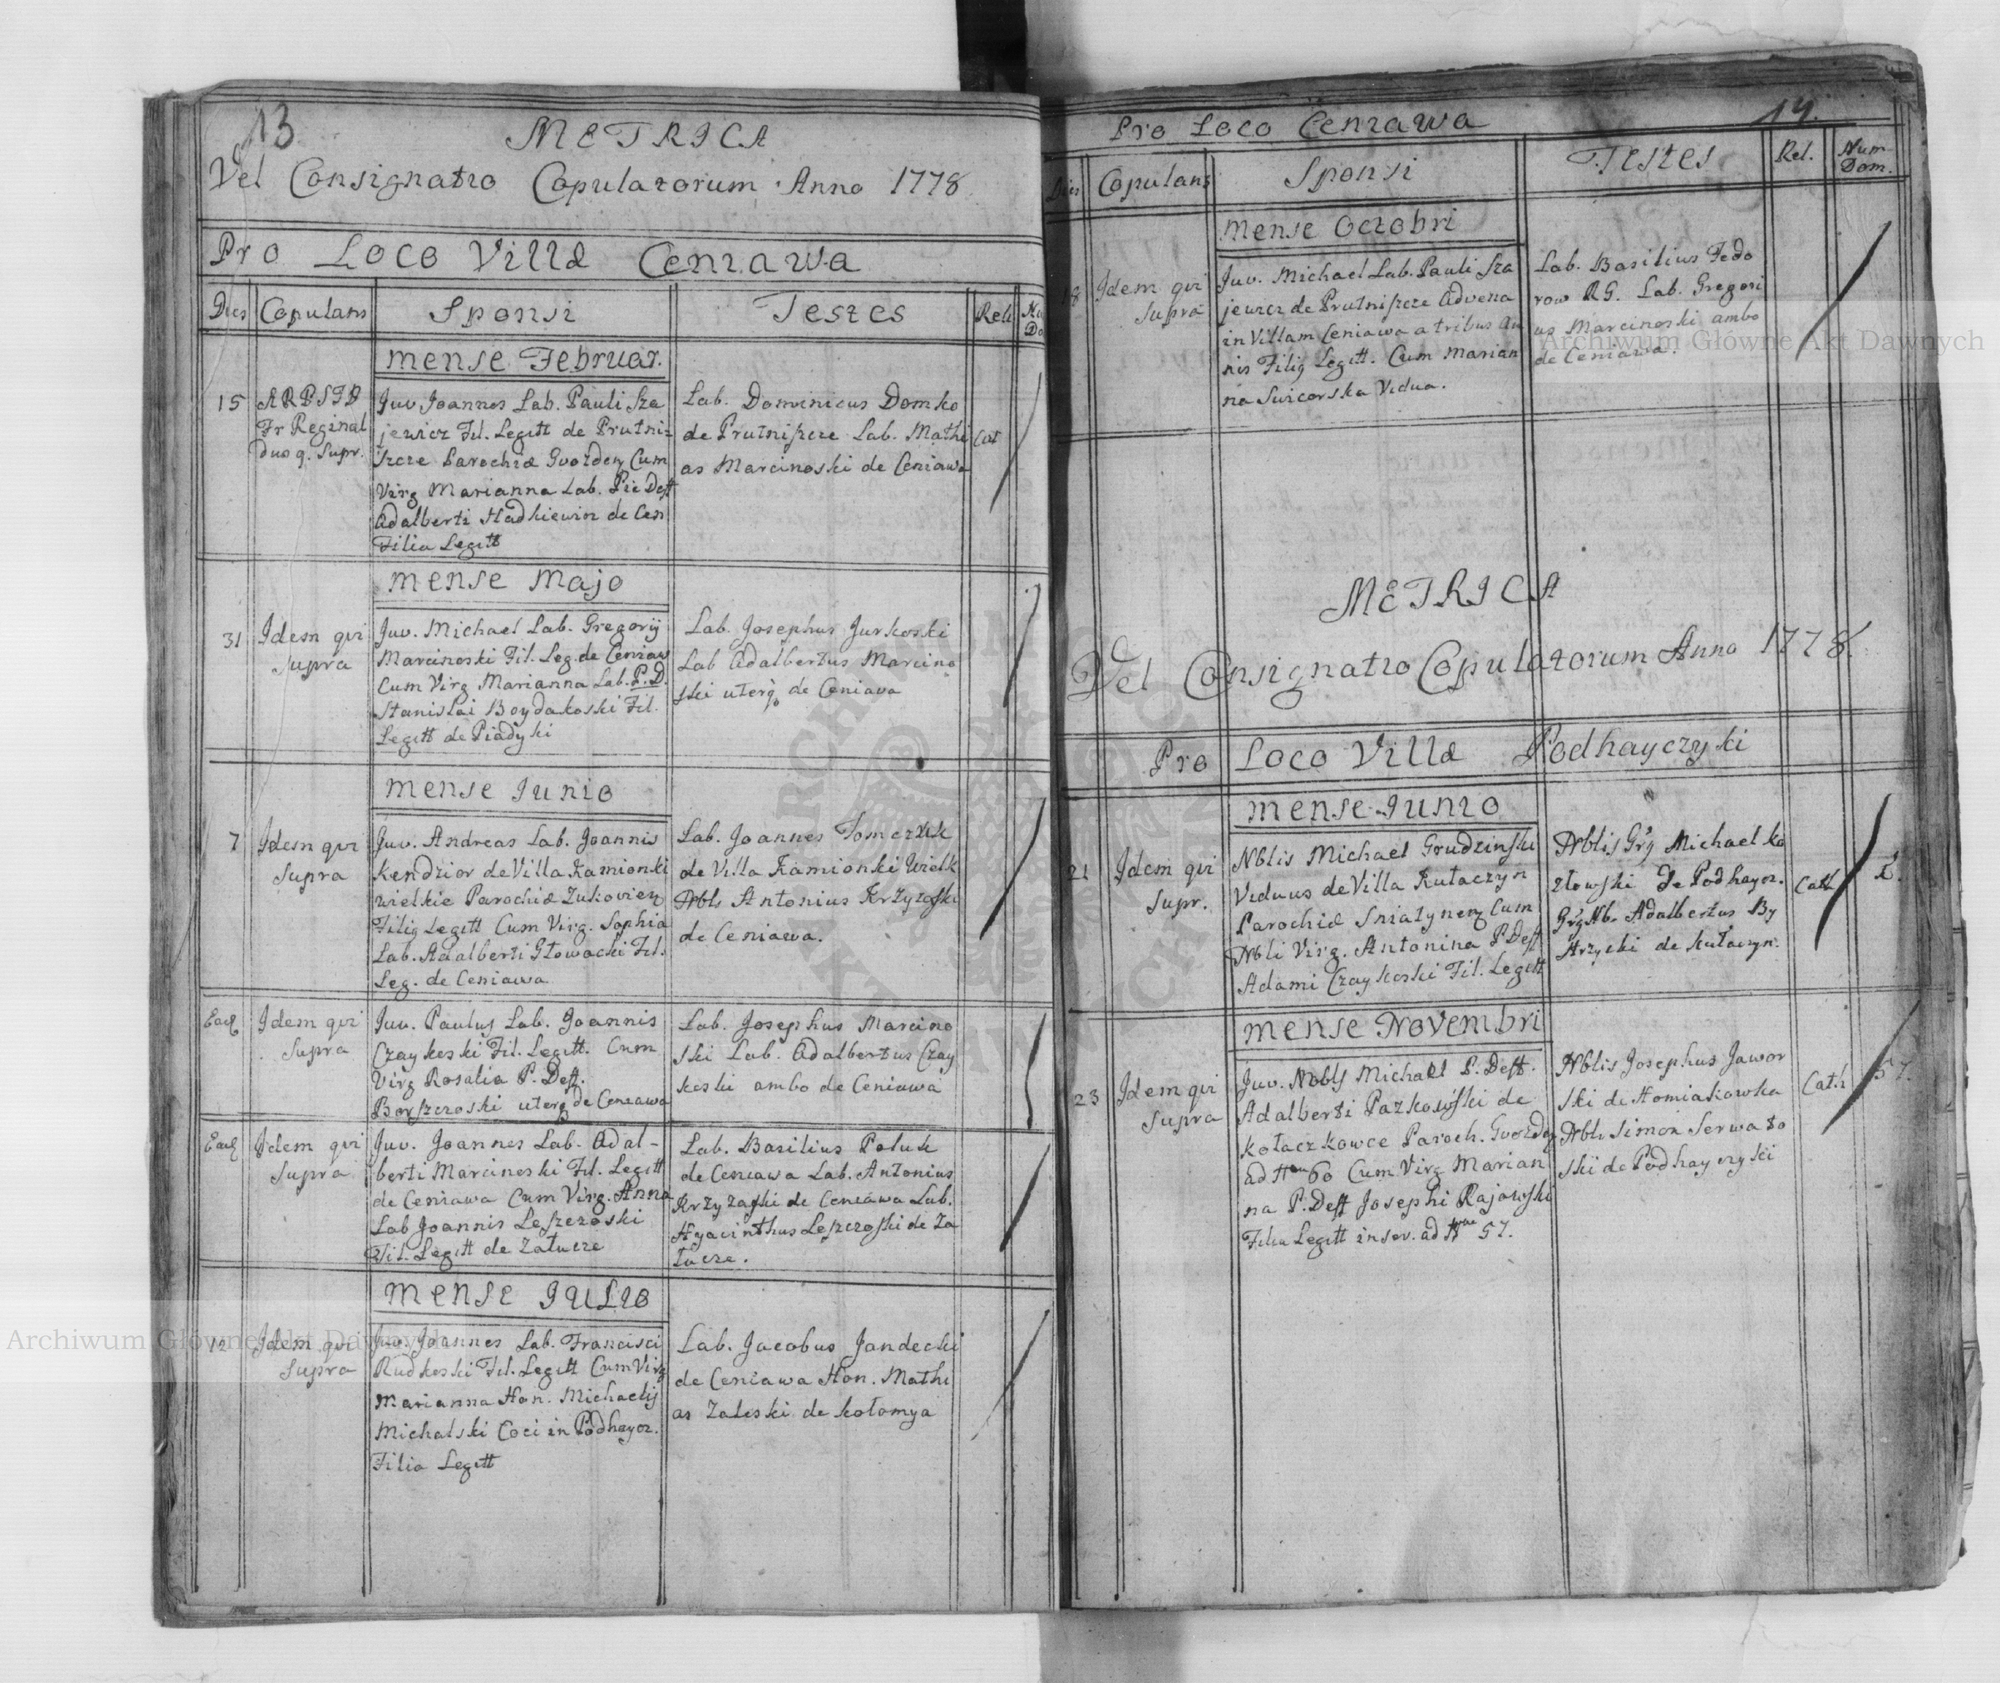 13
METRICA
Vel Consignatio Copulatorum Anno 1778
Pro Loco Villæ Ceniawa
Dies Copulans Sponsi Testes Reli Nu Do
mense Februar.
15
ARPSTD
Fr Reginal
dus q. Supr.
Juv Joannes Lab. Pauli Sza
jewicz Fil. Legitt de Prutni
szcze Parochiæ Gvozdez Cum
Virg Marianna Lab. Pie Deff
Adalberti Hadkiewicz de Cen
Filia Legitt
Lab. Dominicus Domko
de Prutniszcze Lab. Mathi
as Marcinoski de Ceniawa
Cat
mense Majo
31
Idem qui
supra
Juv. Michael Lab. Gregorij
Marcinoski Fil. Leg. de Ceniaw
Cum Virg Marianna Lab. P. D.
Stanislai Boydakoski Fil.
Legitt de Piadyki
Lab. Josephus Jurkoski
Lab Adalbertus Marcino
ski uterq de Ceniava
mense Iunio
7
Idem qui
supra
Juv. Andreas Lab. Joannis
Kendzior de Villa Kamionki
wielkie Parochiæ Zukoviez
Filig Legitt Cum Virg. Sophia
Lab. Adalberti Głowacki Fil.
Leg. de Ceniawa
Lab. Joannes Tomczuk
de Villa Kamionki Wielk
Nbls Antonius Krzyzoski
de Ceniawa.
Ead
Idem qui
supra
Juv. Paulus Lab. Joannis
Czaykoski Fil. Legitt. Cum
Virg Rosalia P. Deff.
Borszczoski uterq de Ceniawa
Lab. Josephus Marcino
ski Lab. Adalbertus Czay
koski ambo de Ceniawa
Ead
Idem qui
supra
Juv. Joannes Lab. Adal-
berti Marcinoski Fil. Legitt
de Ceniawa Cum Virg. Anna
Lab Joannis Leszczoski
Fil. Legitt de Załucze
Lab. Basilius Poluk
de Ceniawa Lab. Antonius
Krzyzoski de Ceniawa Lab.
Hyacinthus Leszczoski de Za
łucze.
mense Iulio
12
Idem qui
supra
Juv. Joannes Lab. Francisci
Rudkoski Fil. Legitt Cum Virg
Marianna Hon. Michaelis
Michalski Coci in Podhaycz.
Filia Legitt
Lab. Jacobus Jandecki
de Ceniawa Hon. Mathi
as Zaleski de Kołomya
14.
Pro Loco Ceniawa
Dies Copulans Sponsi Testes Rel. Num Dom.
mense Octobri
18
Idem qui
supra
Juv. Michael Lab. Pauli Sza
jewicz de Prutniszcze Advena
in Villam Ceniawa a tribus An
nis Filig Legitt. Cum Marian
na Swicorska Vidua.
Lab. Basilius Fedo
row RG. Lab. Gregori
us Marcinoski ambo
de Ceniawa.
METRICA
Vel Consignatio Copulatorum Anno 1778.
Pro Loco Villæ Podhayczyki
mense Iunio
21
Idem qui
supr.
Nblis Michael Grudzinski
Viduus de Villa Kułaczyn
Parochiæ Sniatynen Cum
Nbli Virg. Antonina P Deff
Adami Czaykoski Fil. Legitt
Nblis Grg Michael Ko
złowski de Podhaycz.
Grg Nb. Adalbertus By
strzycki de Kułaczyn.
Cath
2.
mense Novembri
23
Idem qui
supra
Juv. Nobls Michael P. Deff.
Adalberti Pazkowski de
Kołaczkowce Paroch. Gvozdez
ad Nrum 60 Cum Virg Marian
na P. Deff Josephi Rajowski
Filia Legitt in ser. ad Nrum 57.
Nblis Josephus Jawor
ski de Homiakowka
Nbls Simon Serwato
ski de Podhayczyki
Cath
57.
Archiwum Główne Akt Dawnych
Archiwum Główne Akt Dawnych